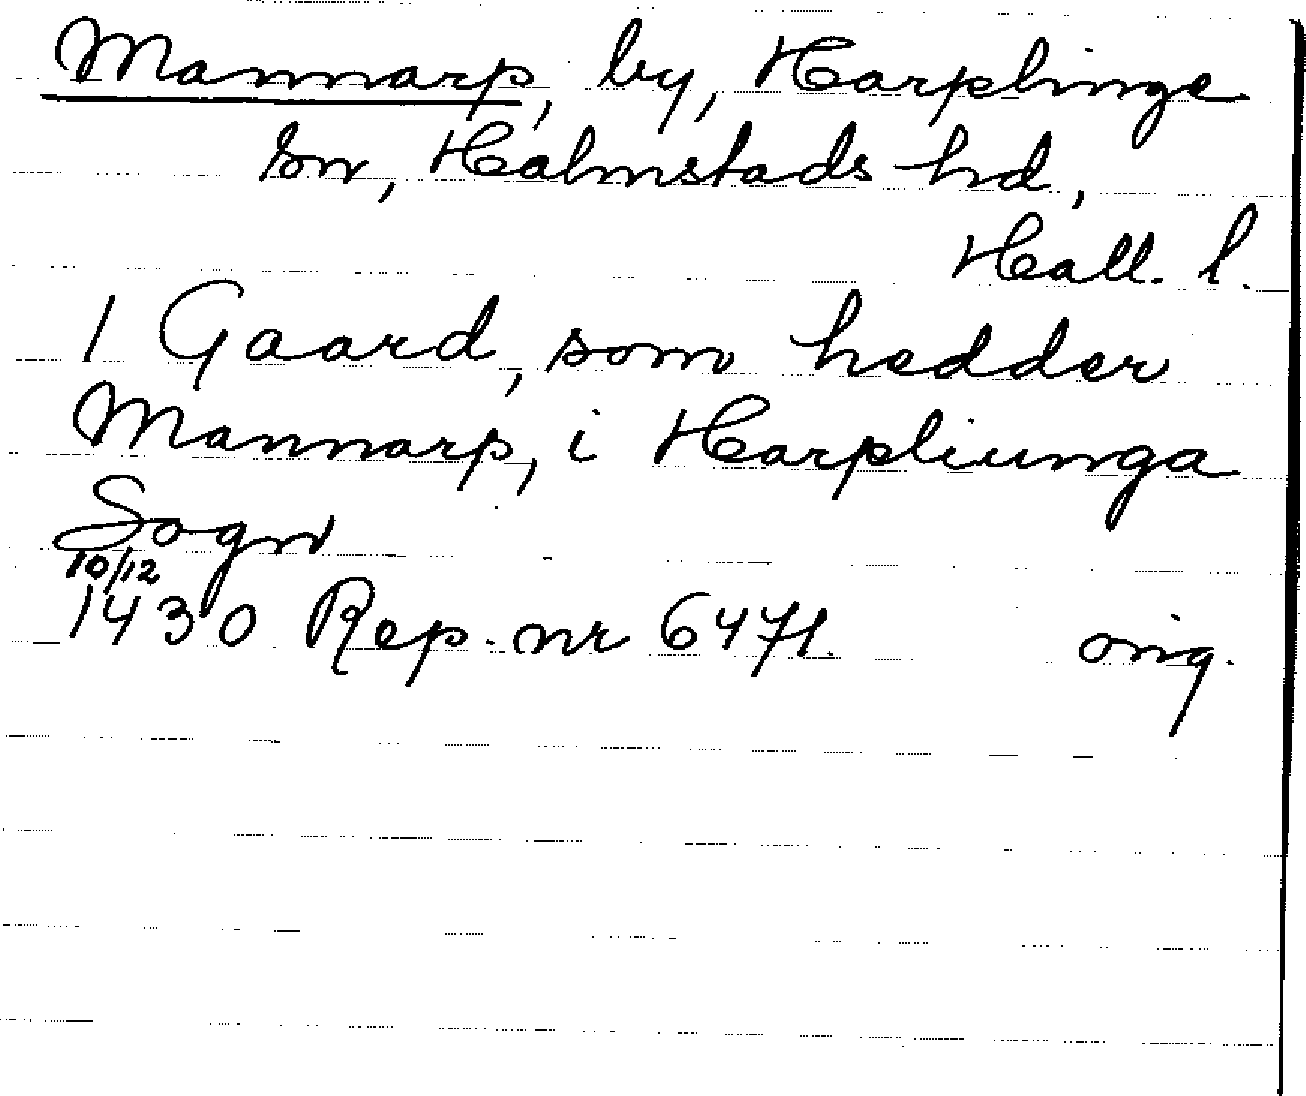 Mannarp, by, Harplinge
sn, Halmstads hd,
Hall. l.
1 Gaard, som hedder
Mannarp, i Harpliunga
Sogn
10/12
1430 Rep. nr 6471. orig.